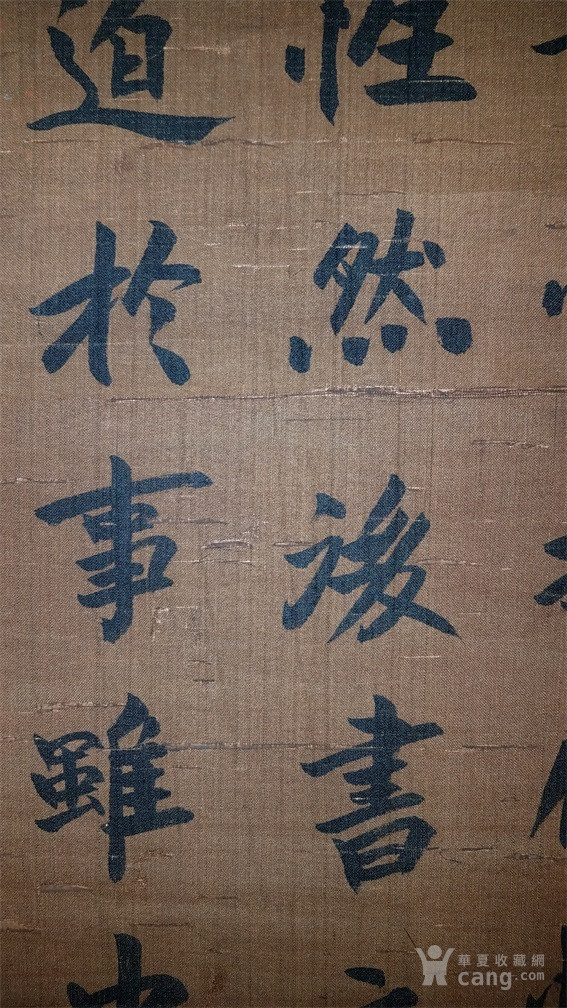 性然後書之
迫於事雖中
華夏收藏網
cang.com